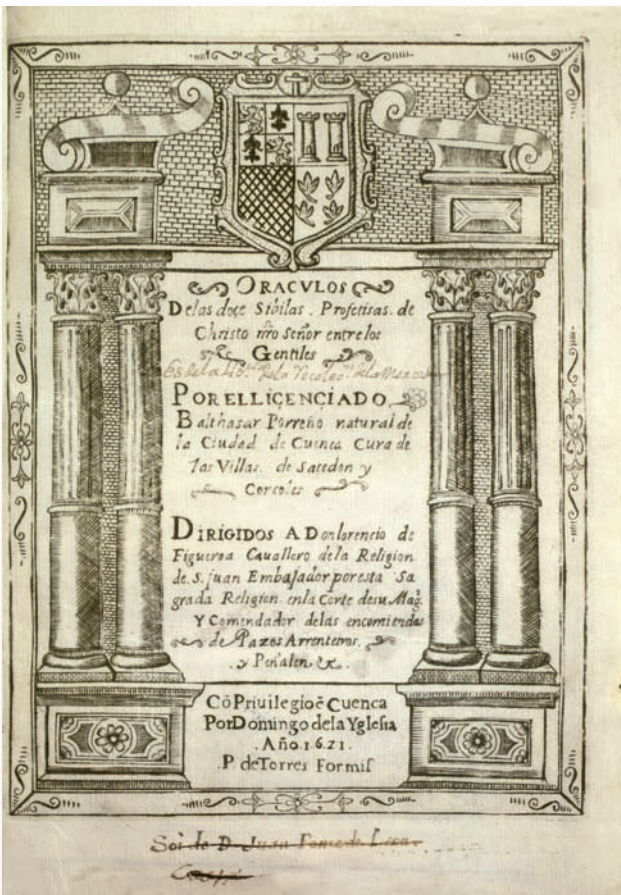 ORACVLOS
Delas doçe Sibilas. Profetisas. de
Christo nr̃o Señor entre los
Gentiles
PORELLIÇENÇIADO
Balthasar Porreño natural de
la Ciudad de Cuenca Cura de
las Villas. de Saçedon y
Corcoles
DIRIGIDOS A Don lorencio de
Figueroa Cauallero dela Religion
de. S. juan Embajador por esta Sa
grada Religion. enla Corte desu Mag.
Y Comendador delas encomiendas
de Pazos Arrenteiros.
. y Peñalen &.
Cõ Priuilegio ẽ Cuenca
Por Domingo dela Yglesia
. Año. 1.6.21.
. P. de Torres Formis
Soi de D. Juan